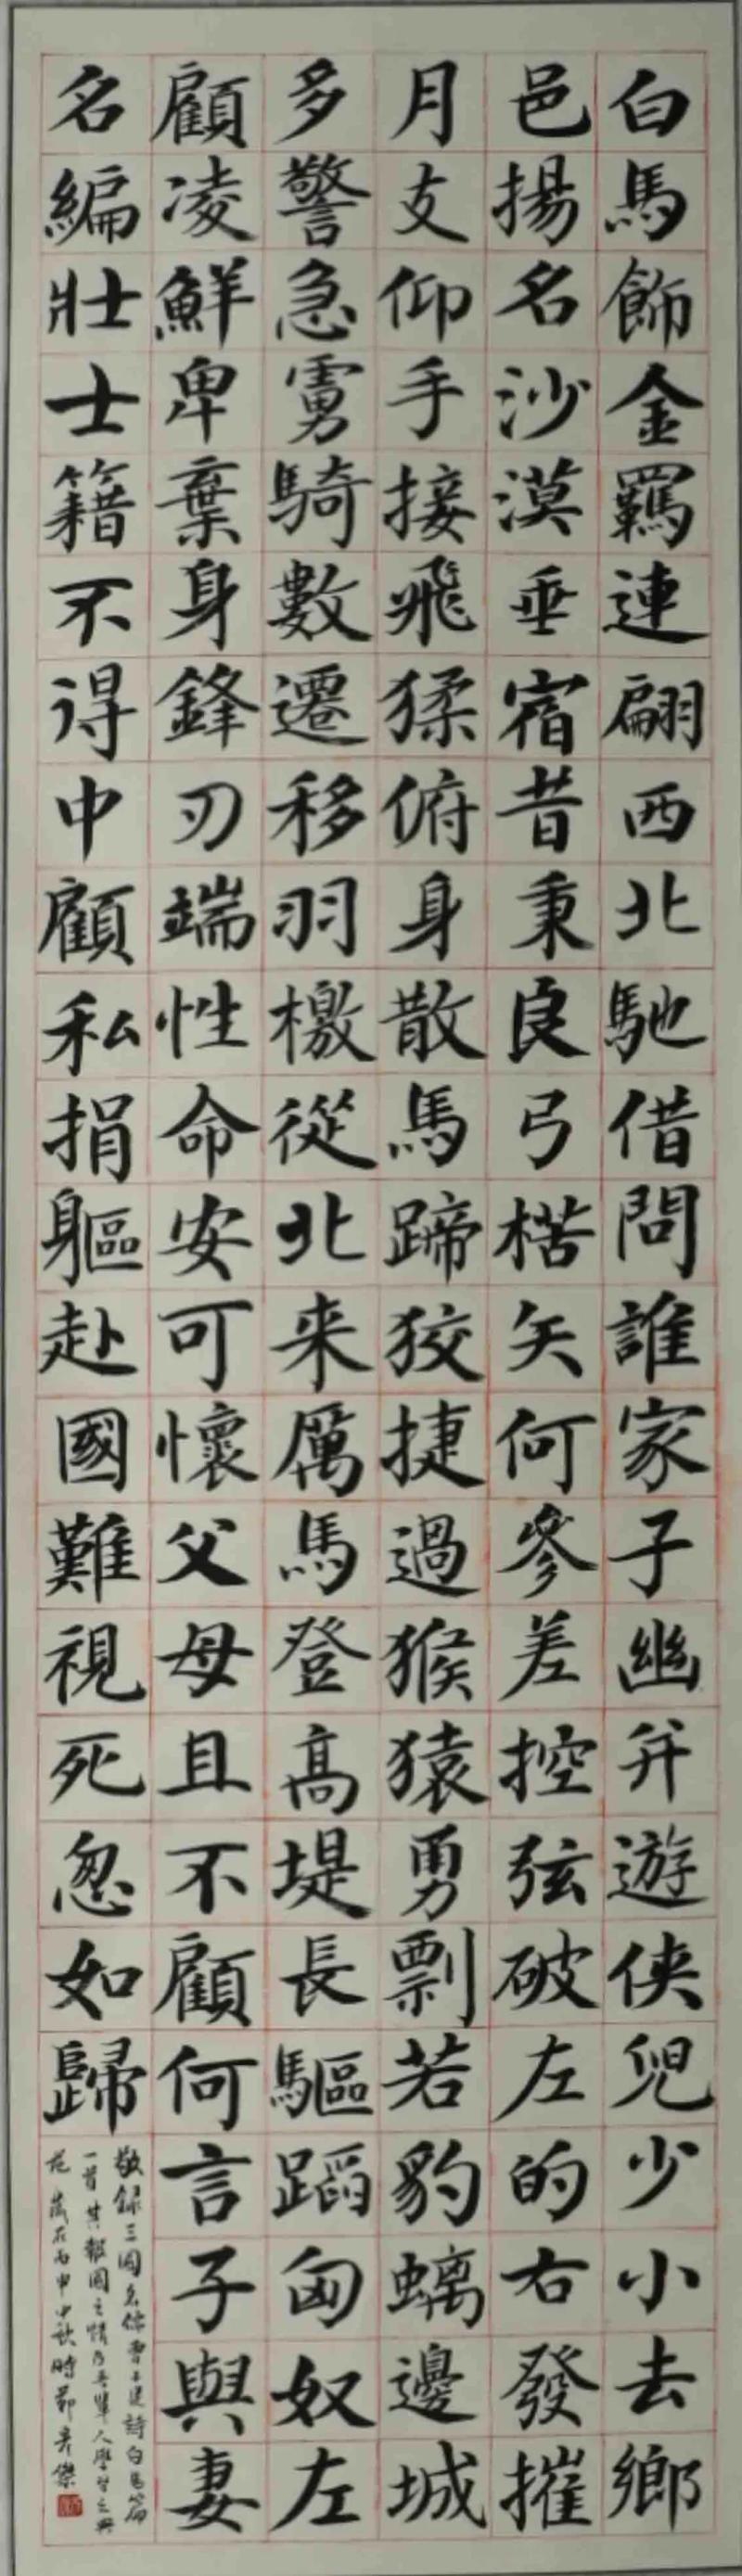 白馬飾金羈連翩西北馳借問誰家子幽并遊俠兒少小去鄉
邑揚名沙漠垂宿昔秉良弓楛矢何參差控弦破左的右發摧
月支仰手接飛猱俯身散馬蹄狡捷過猴猿勇剽若豹螭邊城
多警急虜騎數遷移羽檄從北来厲馬登高堤長驅蹈匈奴左
顧凌鮮卑棄身鋒刃端性命安可懷父母且不顧何言子與妻
名編壯士籍不得中顧私捐軀赴國難視死忽如歸
敬録三國名儒曹子建詩白馬篇
一首其報國之情乃吾輩人學習之典
范歲在丙申中秋時節 傑